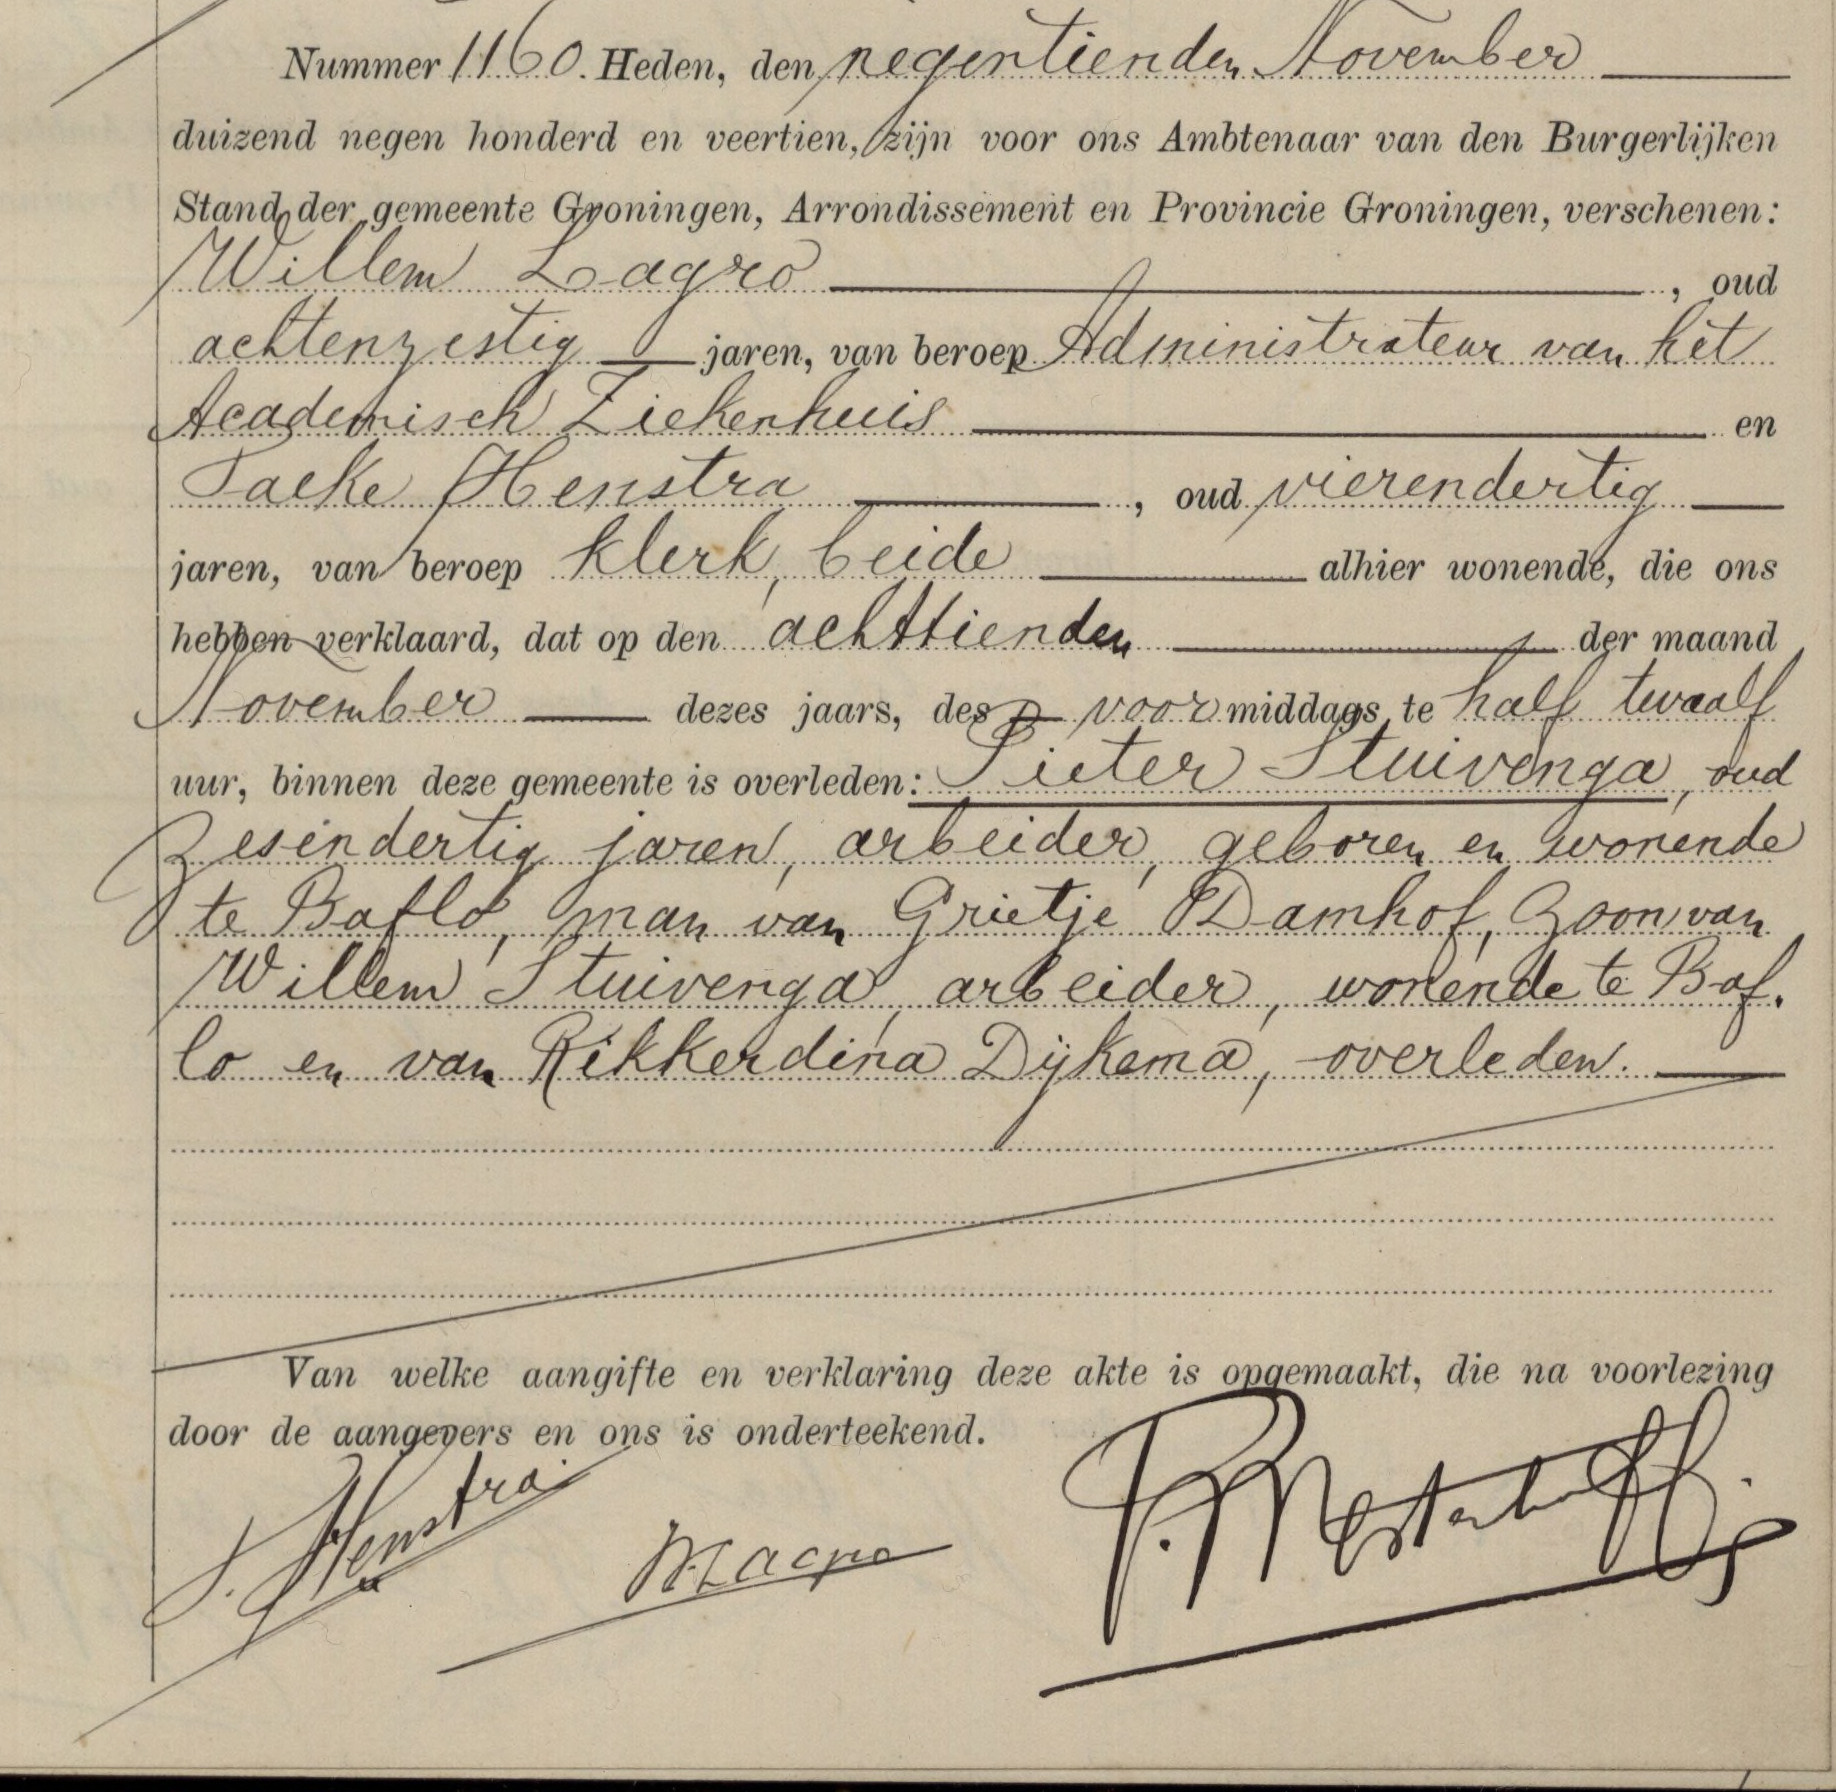 Nummer 1160. Heden, den negentienden November
duizend negen honderd en veertien, zijn voor ons Ambtenaar van den Burgerlijken
Stand der gemeente Groningen, Arrondissement en Provincie Groningen, verschenen:
Willem Lagro, oud
achtenzestig jaren, van beroep Administrateur van het
Academisch Ziekenhuis en
Taeke Henstra, oud vierendertig
jaren, van beroep klerk, beide alhier wonende, die ons
hebben verklaard, dat op den achttienden der maand
November dezes jaars, des voormiddags te half twaalf
uur, binnen deze gemeente is overleden: Pieter Stuivenga, oud
zesendertig jaren, arbeider, geboren en wonende
te Baflo, man van Grietje Damhof, zoon van
Willem Stuivenga, arbeider, wonende te Baf.
lo en van Rikkerdina Dijkema, overleden.
Van welke aangifte en verklaring deze akte is opgemaakt, die na voorlezing
door de aangevers en ons is onderteekend.
T. Henstra. W. Lagro